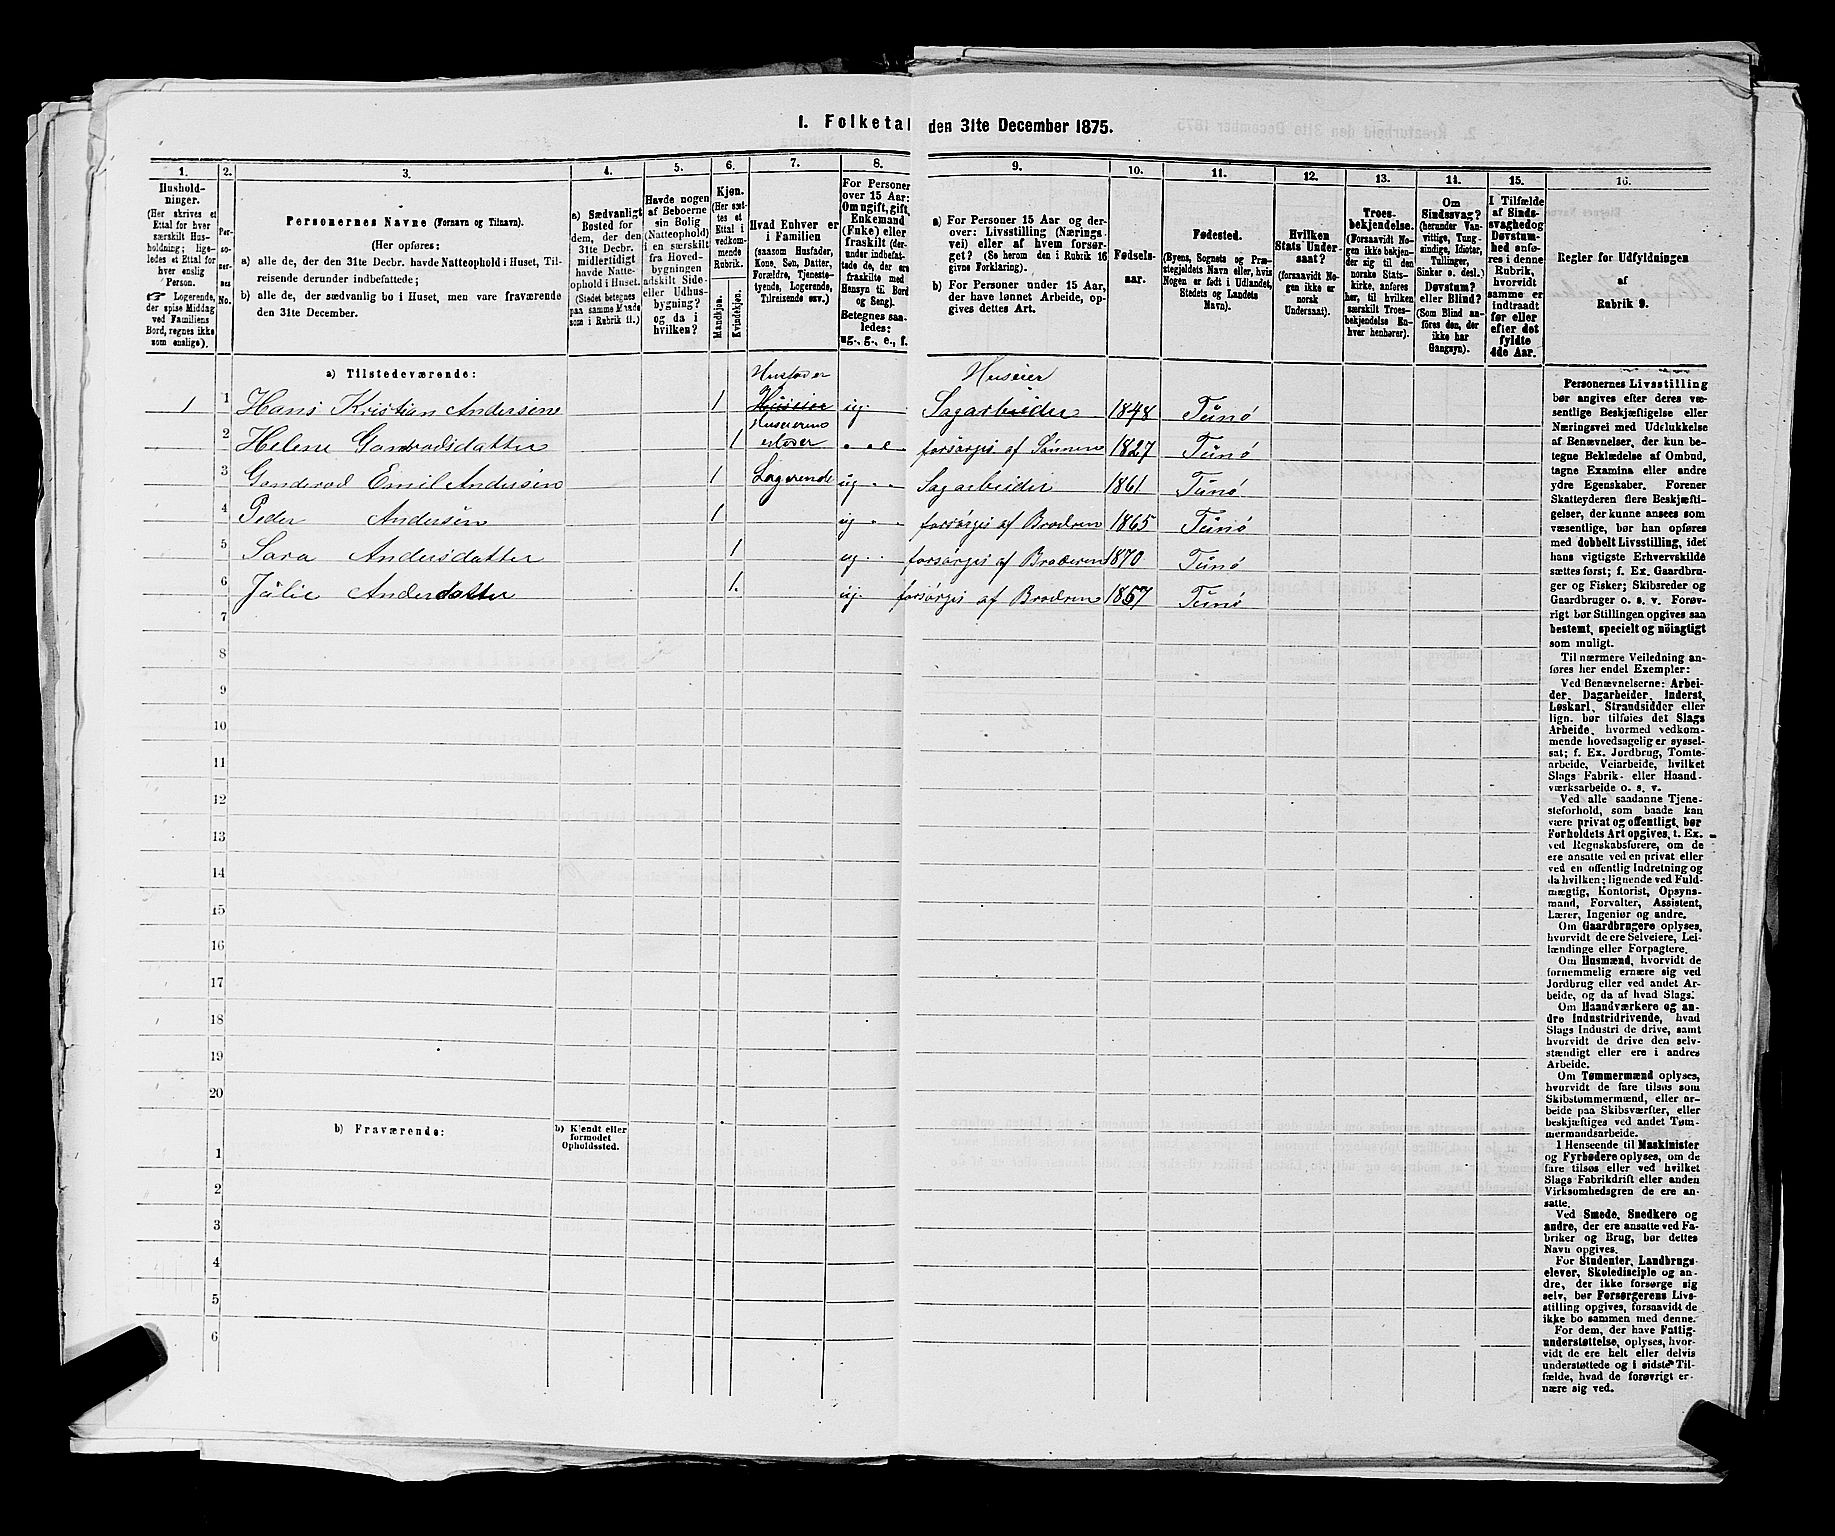 1. Folketal den 31te December 1875.
1.
2.
3.
4.
5.
6.
7.
8.
9.
10.
11.
12.
13.
14.
15.
16.
Hushold-
ninger.
(Her skrives et
Ettal for hver
særskilt Hus-
holdning; lige-
ledes et Ettal for
hver enslig
Person.
☞ Logerende,
der spise Middag
ved Familiens
Bord, regnes ikke
som enslige).
Per-
so-
ner-
nes
No.
Personernes Navne (Fornavn og Tilnavn).
(Her opføres:
a) alle de, der den 31te Decbr. havde Natteophold i Huset, Til-
reisende derunder indbefattede;
b) alle de, der sædvanlig bo i Huset, men vare fraværende
den 31te December.
a) Sædvanligt
Bosted for
dem, der den
31te Decbr.
midlertidigt
havde Natte-
ophold i Huset.
(Stedet betegnes
paa samme Maade
som i Rubrik 11.)
Havde nogen
af Beboerne
sin Bolig
(Natteophold)
i en særskilt
fra Hoved-
bygningen
adskilt Side-
eller Udhus-
bygning?
og da i
hvilken?
Kjøn.
(Her sæt-
tes et
Ettal i
vedkom-
mende
Rubrik.
Mandkjøn.
Kvindekjøn.
Hvad Enhver er
i Familien
(saasom Husfader,
Kone, Søn, Datter,
Forældre, Tjeneste-
tyende, Logerende,
Tilreisende osv.)
For Personer
over 15 Aar:
Om ugift, gift,
Enkemand
(Enke) eller
fraskilt (der-
under indbefat-
tede de, der ere
fraskilte med
Hensyn til Bord
og Seng).
Betegnes saa-
ledes:
ug., g., e., f.
a) For Personer 15 Aar og der-
over: Livsstilling (Nærings-
vei) eller af hvem forsør-
get? (Se herom den i Rubrik 16
givne Forklaring).
b) For Personer under 15 Aar,
der have lønnet Arbeide, op-
gives dettes Art.
Fødsels-
aar.
Fødested.
(Byens, Sognets og Præ-
stegjeldets Navn eller, hvis
Nogen er født i Udlandet,
Stedets og Landets
Navn).
Hvilken
Stats Under-
saat?
(forsaavidt No-
gen ikke er
norsk
Undersaat).
Troes-
bekjendelse.
(Forsaavidt No-
gen ikke bekjen-
der sig til den
norske Stats-
kirke, anføres
her, til hvilken
særskilt Troes-
bekjendelse En-
hver henhører).
Om
Sindssvag?
(herunder Van-
vittige, Tung-
sindige, Idioter,
Tullinger,
Sinker o. desl.)
Døvstum?
eller Blind?
(Som Blind an-
føres den, der
ikke har
Gangsyn).
I Tilfælde
af Sinds-
svaghed og
Døvstum-
hed anfø-
res i denne
Rubrik,
hvorvidt
samme er
indtraadt
før eller
efter det
fyldte
4de Aar.
Regler for Udfyldningen
af
Rubrik 9.
a) Tilstedeværende:
Husfader Huseier
1 1 Hans Kristian Andersene 1 Huseier ug. Sagarbeider 1848 Tünø
Huseierens
2 Helene Gondrodsdatter 1 Moer e forsørges af Sønnen 1827 Tünø
3 Gonderod Emil Andersen 1 Logerende ug Sagarbeider 1861 Tünø
4 Peder Andersen 1 ug forsørges af Brodren 1865 Tünø
5 Sara Andersdatter 1 ug forsørges af Broderen 1870 Tünø
6 Jülie Anderdatter 1. ug. forsørges af Brodren 1867 Tünø
7
8
9
10
11
12
13
14
15
16
17
18
19
20
b) Fraværende:
b) Kjendt eller
formodet
Opholdssted.
1
2
3
4
5
6
Personernes Livsstilling
bør angives efter deres væ-
sentlige Beskjæftigelse eller
Næringsvei med Udelukkelse
af Benævnelser, der kun be-
tegne Beklædelse af Ombud,
tagne Examina eller andre
ydre Egenskaber. Forener
Skatteyderen flere Beskjæfti-
gelser, der kunne ansees som
væsentlige, bør han opføres
med dobbelt Livsstilling, idet
hans vigtigste Erhvervskilde
sættes først; f. Ex. Gaardbru-
ger og Fisker; Skibsreder og
Gaardbruger o. s. v. Forøv-
rigt bør Stillingen opgives saa
bestemt, specielt og nöiagtigt
som muligt.
Til nærmere Veiledning an-
føres her endel Exempler:
Ved Benævnelserne: Arbei-
der, Dagarbeider, Inderst,
Løskarl, Strandsidder eller
lign. bør tilføies det Slags
Arbeide, hvormed vedkom-
mende hovedsagelig er syssel-
sat; f. Ex. Jordbrug, Tomte-
arbeide, Veiarbeide, hvilket
Slags Fabrik- eller Haand-
værksarbeide o. s. v.
Ved alle saadanne Tjene-
steforhold, som baade kan
være privat og offentligt, bør
Forholdets Art opgives, t. Ex.
ved Regnskabsførere, om de
ere ansatte ved en privat eller
ved en offentlig Indretning og
da hvilken; lignende ved Fuld-
mægtig, Kontorist, Opsyns-
mand, Forvalter, Assistent,
Lærer, Ingeniør og andre.
Om Gaardbrugere oplyses,
hvorvidt de ere Selveiere, Lei-
lændinge eller Forpagtere.
Om Husmænd, hvorvidt de
fornemmelig ernære sig ved
Jordbrug eller ved andet Ar-
beide, og da af hvad Slags.
Om Haandværkere og an-
dre Industridrivende, hvad
Slags Industri de drive, samt
hvorvidt de drive den selv-
stændigt eller ere i andres
Arbeide.
Om Tømmermænd oplyses,
hvorvidt de fare tilsøs som
Skibstømmermænd, eller ar-
beide paa Skibsværfter, eller
beskjæftiges ved andet Tøm-
mermandsarbeide.
I Henseende til Maskinister
og Fyrbødere oplyses, om de
fare tilsøs eller ved hvilket
Slags Fabrikdrift eller anden
Virksomhedsgren de ere an-
satte.
Ved Smede, Snedkere og
andre, der ere ansatte ved Fa-
briker og Brug, bør dettes
Navn opgives.
For Studenter, Landbrugs-
elever, Skoledisciple og an-
dre, der ikke forsørge sig
selv, bør Forsørgerens Livs-
stilling opgives, forsaavidt de
ikke bo sammen med denne.
For dem, der have Fattig-
understøttelse, oplyses, hvor-
vidt de ere helt eller delvis
understøttede og i sidste Til-
fælde, hvad de forøvrigt er-
nære sig ved.